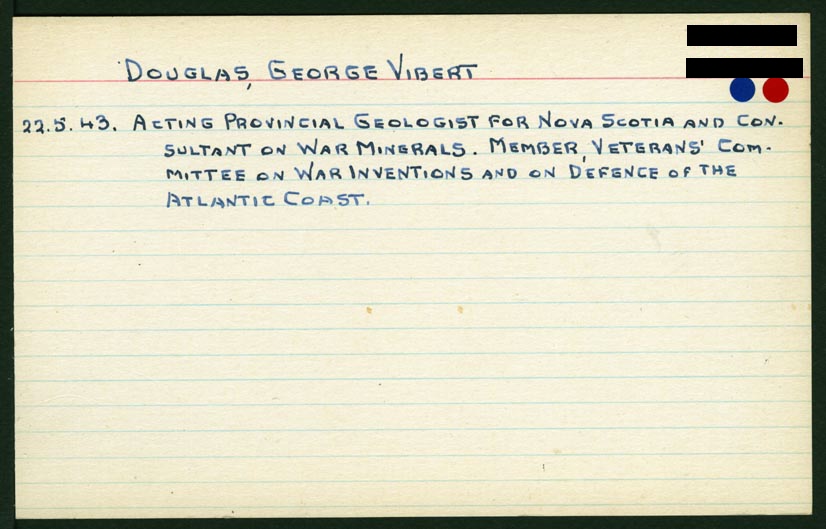 DOUGLAS, GEORGE VIBERT
22.5.43. ACTING PROVINCIAL GEOLOGIST FOR NOVA SCOTIA AND CON-
SULTANT ON WAR MINERALS. MEMBER, VETERANS' COM-
MITTEE ON WAR INVENTIONS AND ON DEFENCE OF THE
ATLANTIC COAST.